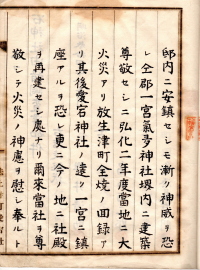 邸内ニ安鎮セシモ漸ク神威ヲ恐
レ仝郡一宮気多神社境内ニ建築
尊敬セシニ弘化二年度当地ニ大
火災アリ放生津町全焼ノ回録ア
リ其後愛宕神社ノ遠ク一宮ニ鎮
座アルヲ恐レ更ニ今ノ地ニ社殿
ヲ再建セシ処ナリ爾来当社ヲ尊
敬シテ火災ノ神慮ヲ慰シ奉ルト